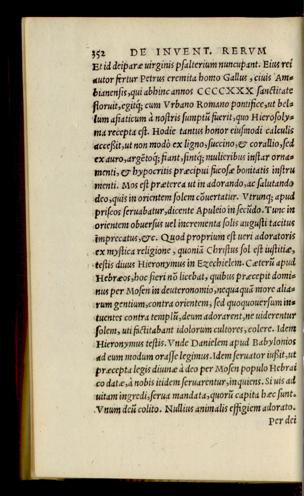 352 DE INVENT. RERVM
Et id deiparæ uirginis psalterium nuncupant. Eius rei
autor fertur Petrus eremita homo Gallus, ciuis Am-
bianensis, qui abhinc annos CCCCXXX sanctitate
floruit, egitq; cum Vrbano Romano pontifice, ut bel-
lum asiaticum à nostris sumptũ fuerit, quo Hierosoly-
ma recepta est. Hodie tantus honor eiusmodi calculis
accessit, ut non modò ex ligno, succino, & corallio, sed
ex auro, argẽtoq; fiant, sintq; mulieribus instar orna-
menti, & hypocritis præcipui fucosæ bonitatis instru
menti. Mos est præterea ut in adorando, ac salutando
deo, quis in orientem solem cõuertatur. Vtrunq; apud
priscos seruabatur, dicente Apuleio in secũdo. Tunc in
orientem obuersus uel incrementa solis augusti tacitus
imprecatus, &c. Quod proprium est ueri adoratoris
ex mystica religione, quoniã Christus sol est iustitiæ,
testis diuus Hieronymus in Ezechielem. Cæterũ apud
Hebræos, hoc fieri nõ licebat, quibus præcepit domi-
nus per Mosen in deuteronomio, nequaquã more alia-
rum gentium, contra orientem, sed quoquouersum in-
tuentes contra templũ, deum adorarent, ne uiderentur
solem, uti factitabant idolorum cultores, colere. Idem
Hieronymus testis. Vnde Danielem apud Babylonios
ad eum modum orasse legimus. Idem seruator iussit, ut
præcepta legis diuinæ à deo per Mosen populo Hebrai
co datæ, à nobis itidem seruarentur, inquiens. Si uis ad
uitam ingredi, serua mandata, quorũ capita hæc sunt.
Vnum deũ colito. Nullius animalis effigiem adorato.
Per dei